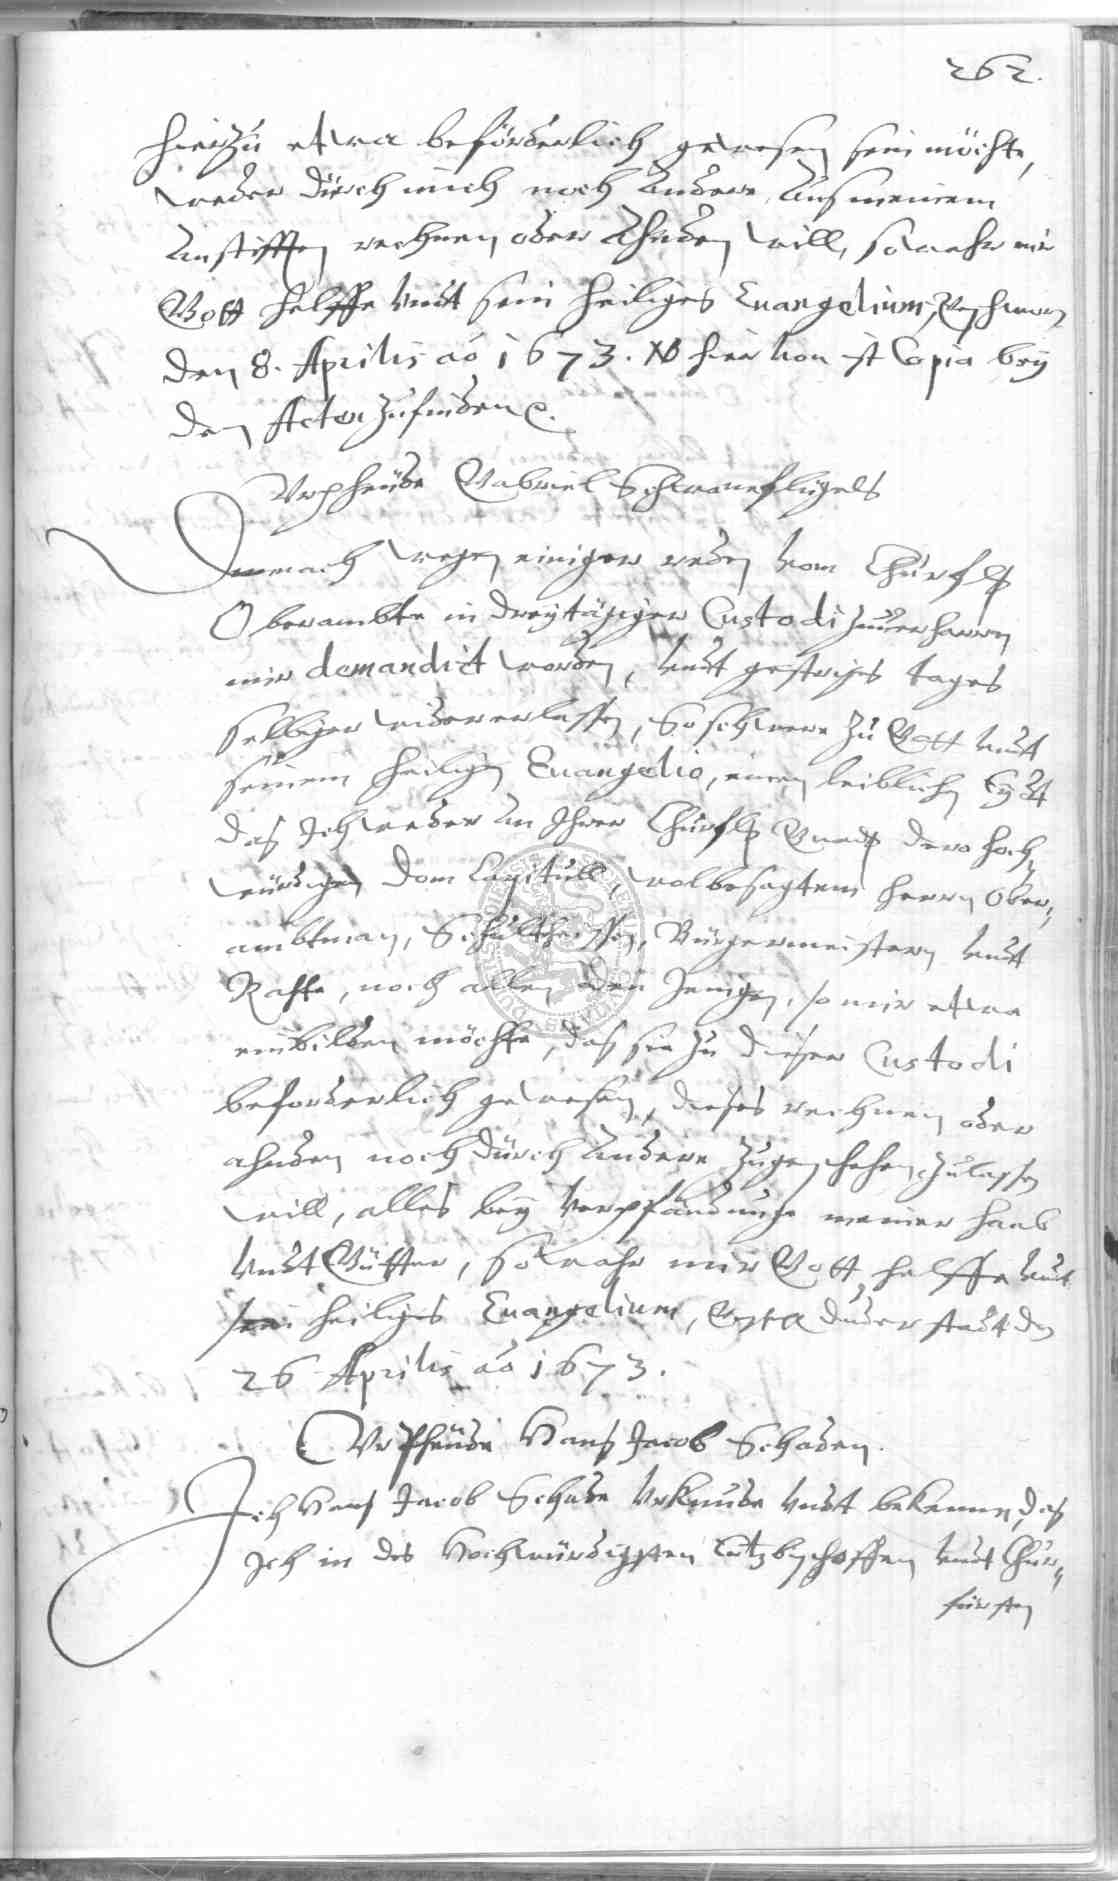 262.
hierzu etwa beförderlich gewesen sein möchte,
weder durch mich noch andere aus meinem
anstifften rechnen oder ahnden will, so wahr mir
Gott helffe undt sein heiliges Evangelium, Geschworen
den 8. Aprilis ao 1673. NB hiervon ist Copia bey
den Acten zufinden.
Urpheude Gabriel Schwaneflügels
Demnach wegen einiger reden vom Churfl
Oberambte in dreytägiger Custodi zuverharren
mir demandirt worden, undt gestriges tages
selbiger widererlassen, So schwere zu Gott undt
seinem heiligen Evangelio, einen leiblichen Eydt
das Ich weder an Ihrer Churfl Gnad dero hoch
würdigen Dom Capitull, wolbesagtem herrn Ober,,
ambtman, Schultheissen, Bürgermeistern undt
Rahte, noch allen den Jenigen, so mir etwa
einbilden möchte, das sie zu dieser Custodi
beforderlich gewesen, dieses rechnen oder
ahnden noch durch andere zugeschehen zulassen
will, alles bey Verpfändunge meiner haab
undt Gütter, So wahr mir Gott helffe undt
sein heiliges Evangelium, Duderstadt den
26 Aprilis ao 1673.
Urpheude Hans Jacob Schaden.
Ich Hans Jacob Schade Urkunde undt bekenne, das
Ich in des Hochwürdigsten Ertzbischoffen undt Chur,,
fürsten